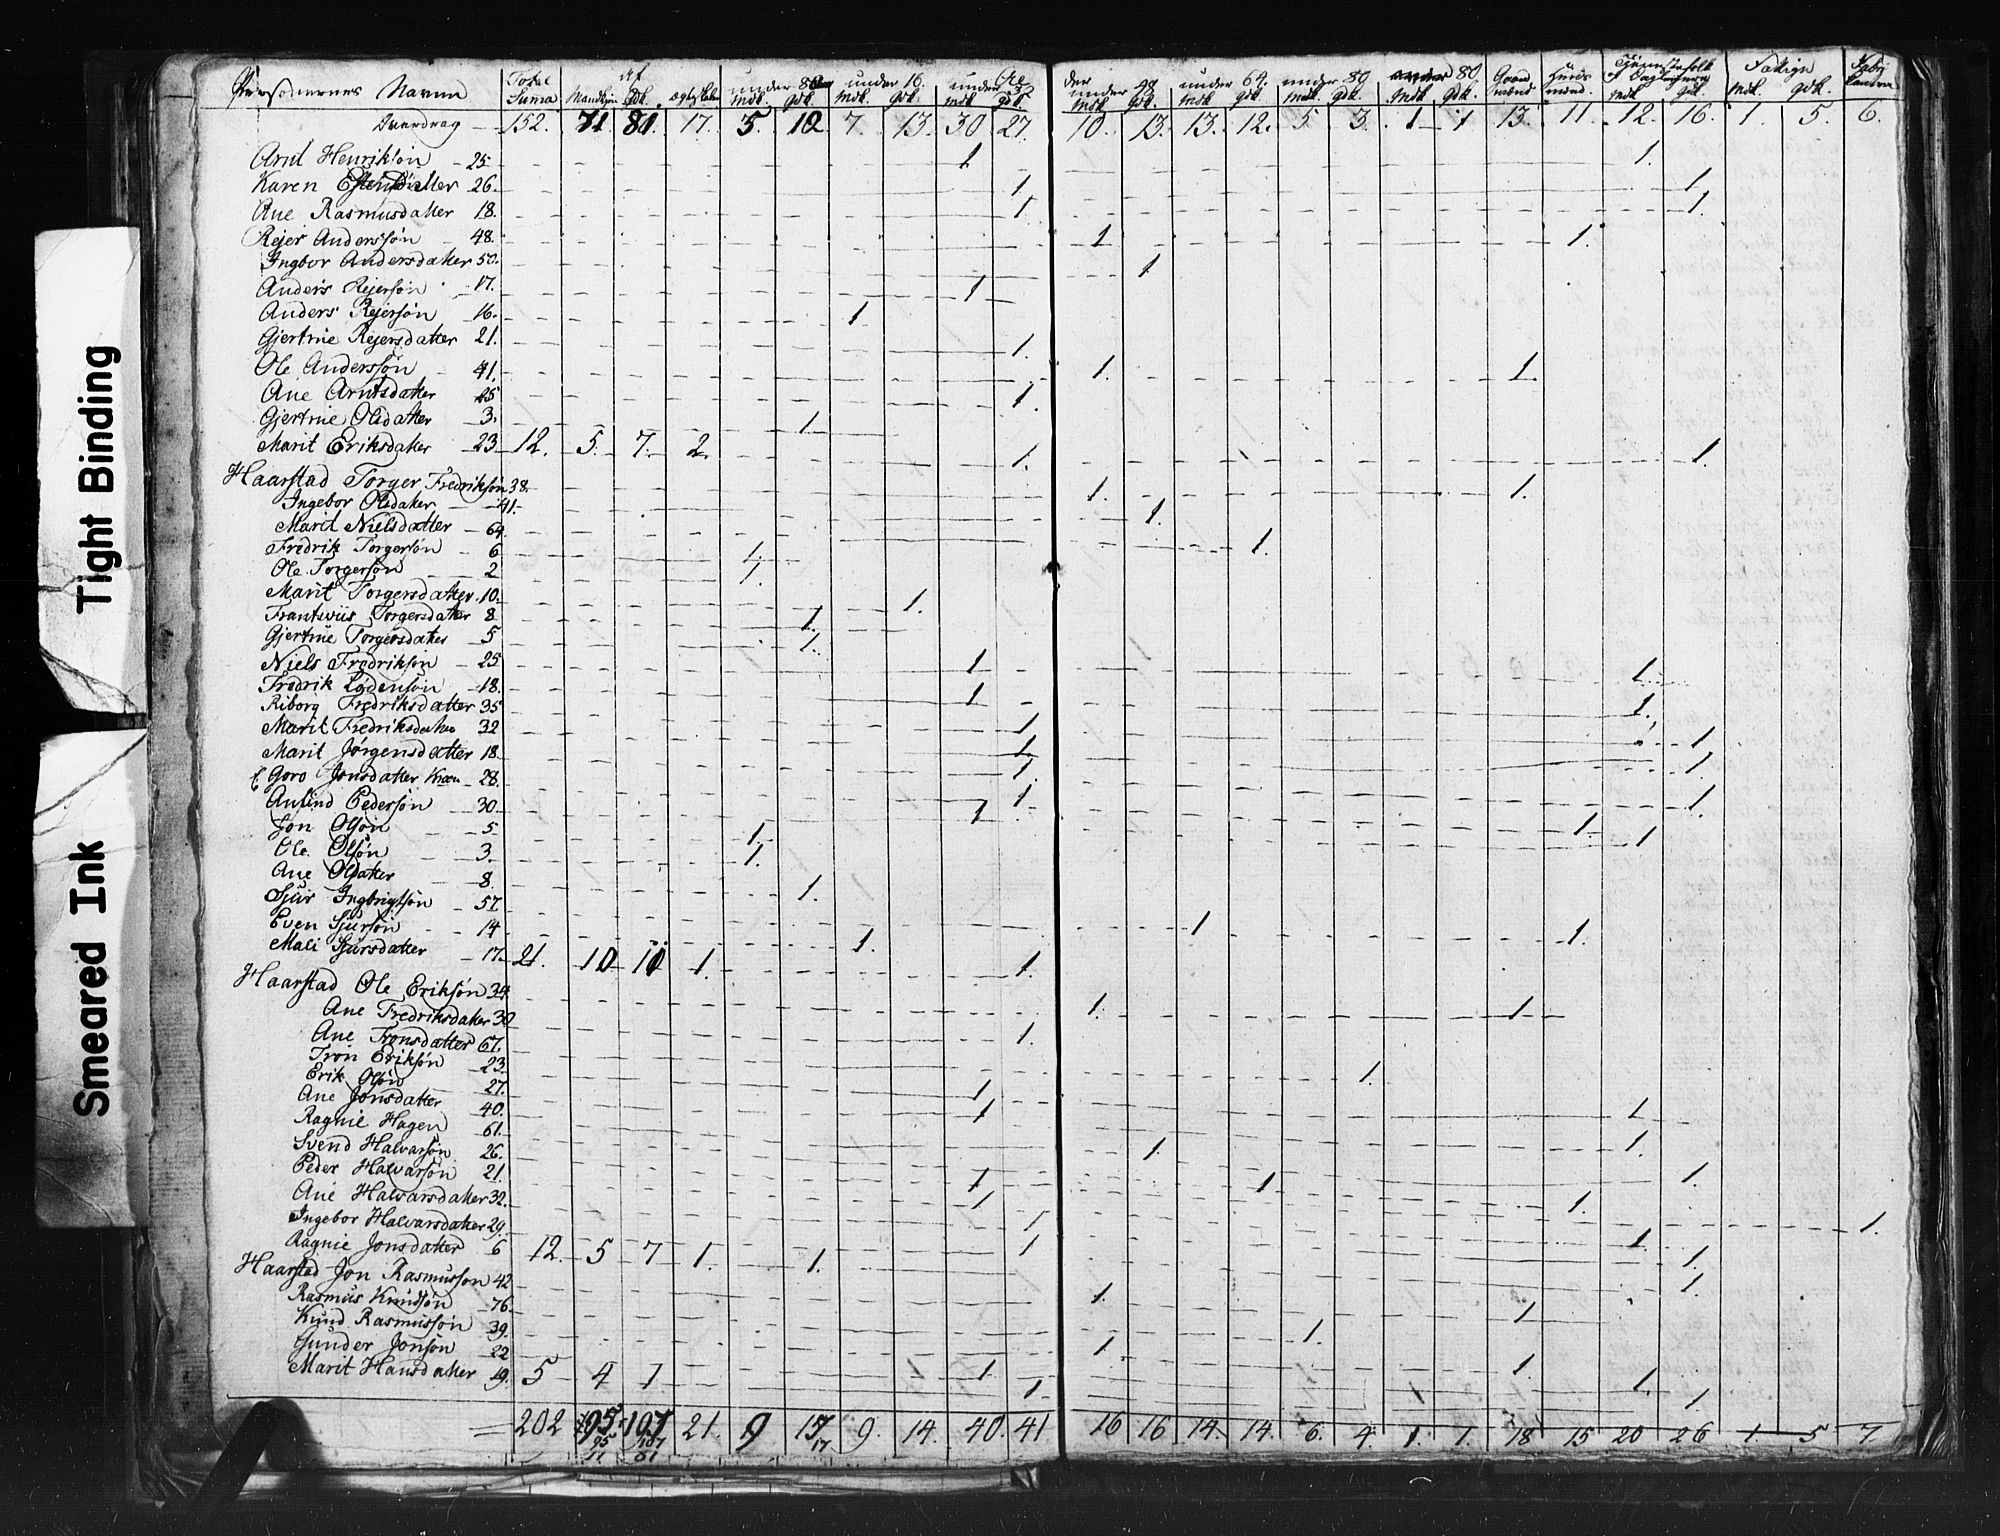 Tight Binding
Smeared Ink
Personernes Navne Total Suma af Mandkjøn Qdk. ægteskaber under 8 Mdk. Qdk. under 16 Mdk. Qdk. under 32 Mdk. Qdk. under 48 Mdk. Qdk. under 64 Mdk. Qdk. under 80 Mdk. Qdk. over 80 Mdk. Qdk. Gaard mænd Huus mænd Tienestefolk Mdk Qdk. Fattige Mdk. Qdk.
Overdrag 152. 71 81. 17. 5. 10 7. 13. 30 27. 10. 13. 13. 12. 5. 3. 1 1 13. 11. 12. 16. 1. 5. 6.
Arnt Henriksøn 25 1 1.
Karen Estensdatter 26 1. 1
Ane Rasmusdatter 18. 1. 1.
Rejer Anderssøn 48. 1 1.
Ingbor Andersdatter 50. 1
Anders Rejersøn 17. 1
Anders Rejersøn 16. 1
Gjertrue Rejersdatter 21. 1.
Ole Anderssøn 41. 1. 1.
Ane Arntsdatter 25 1.
Gjertrue Olsdatter 3. 1.
Marit Eriksdatter 23 12. 5. 7. 2. 1. 1.
Haarstad Torger Fredriksøn 38. 1. 1.
Ingebor Olsdatter 41. 1.
Marit Nielsdatter 64. 1.
Fredrik Torgersøn 6 1.
Ole Torgersøn 2 1.
Marit Torgersdatter 10. 1.
Frantswiis Torgersdatter 8 1.
Gjertrue Torgersdatter 5 1.
Niels Fredriksøn 25 1 1.
Fredrik Lodensøn 18. 1 1.
Riborg Fredriksdatter 35 1 1.
Marit Fredriksdatter 32 1 1.
Marit Jørgensdatter 18. 1. 1.
Goro Jonsdatter 28. 1
Anfind Pedersøn 30 1 1. 1.
Jon Olsøn 5 1.
Ole Olsøn 3. 1.
Ane Olsdatter 8. 1.
Sjur Ingbrigtsøn 57 1 1.
Even Sjursøn 14 1.
Mali Sjursdatter 17. 21. 10 11 1. 1.
Haarstad Ole Eriksøn 34 1. 1.
Ane Fredriksdatter 30 1.
Ane Tronsdatter 67. 1.
Tron Eriksøn 23 1. 1.
Erik Olsøn 27. 1. 1.
Ane Jonsdatter 40. 1. 1.
Ragnie Hagen 61. 1.
Svend Halvarsøn 26. 1 1.
Peder Halvarsøn 21. 1. 1.
Ane Halvarsdatter 32. 1 1.
Ingebor Halvarsdatter 29. 1 1.
Ragnie Jonsdatter 6 12. 5 7 1. 1.
Haarstad Jon Rasmusson 42 1. 1.
Rasmus Knudsøn 76 1.
Knud Rasmusson 39. 1 1.
Gunder Jonsøn 22 1. 1.
Marit Hansdatter 19. 5 4 1 1. 1.
= 202 95 107 21. 9 17 9. 14. 40. 41 16 16 14. 14. 6. 4. 1. 1. 18 15 20 26 1 5 7.
95 107 17